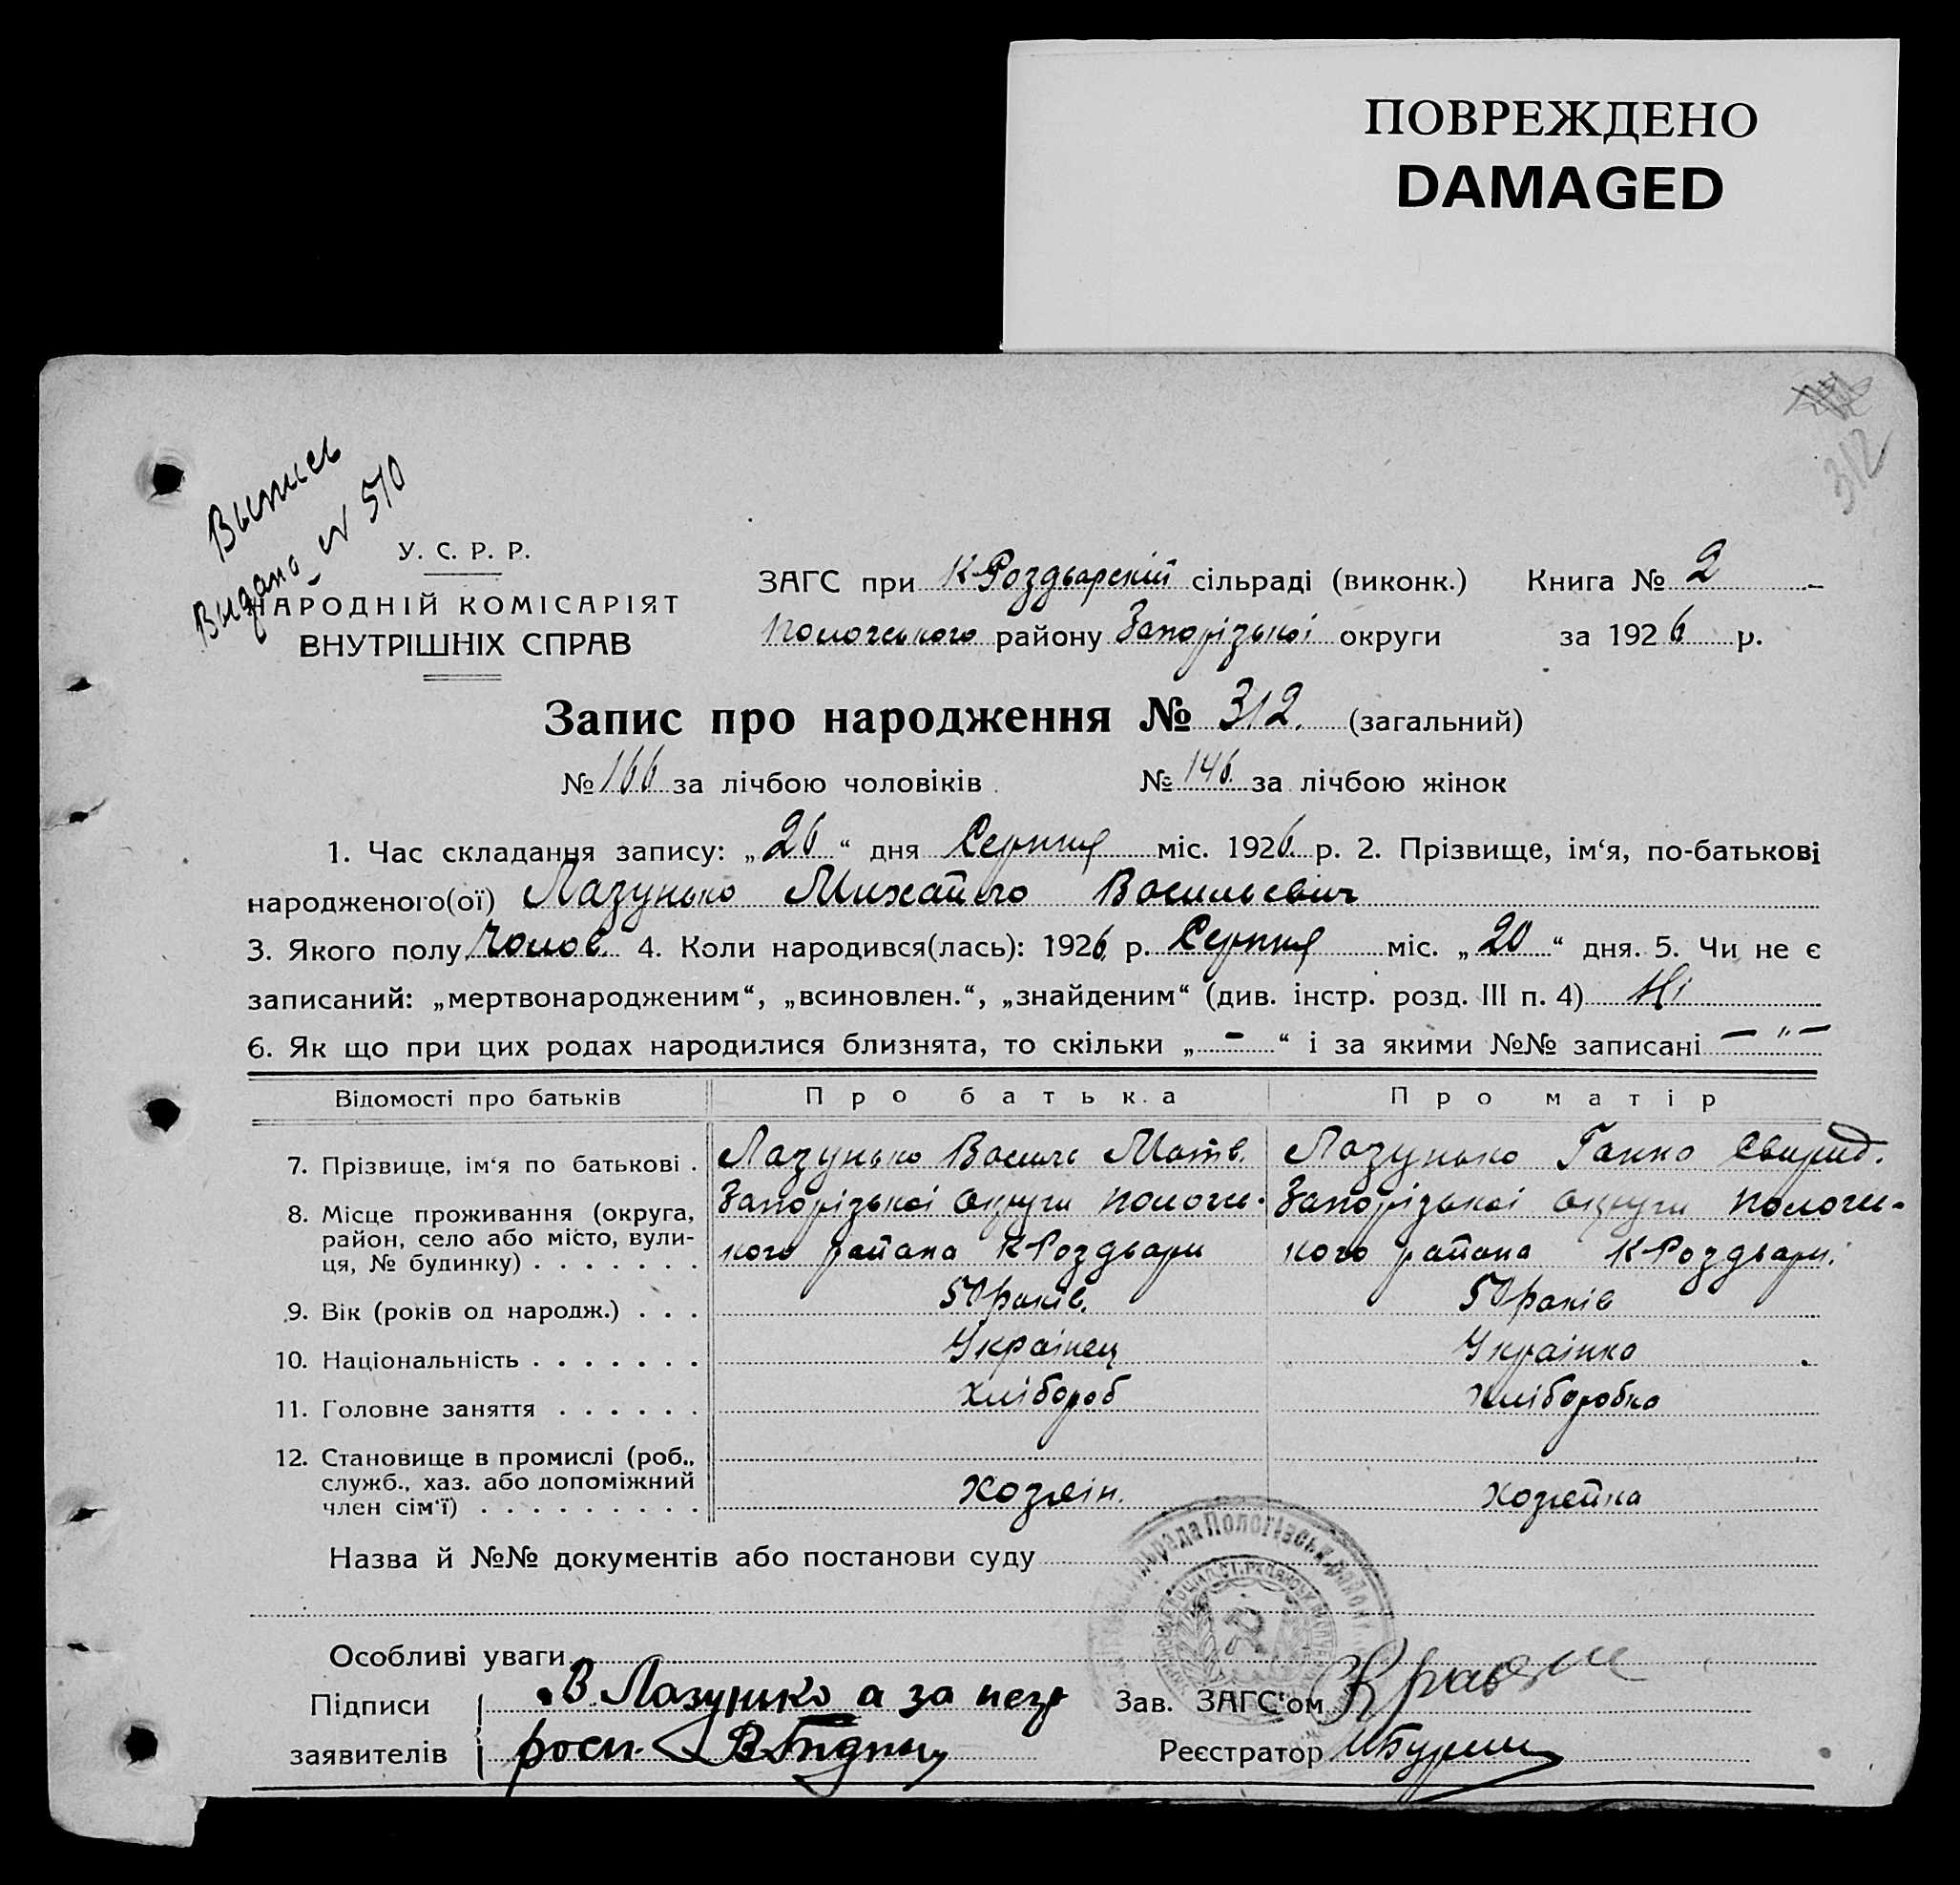 ПОВРЕЖДЕНО
DAMAGED
312
Выпись
Выдано № 510
У. С. Р. Р.
НАРОДНІЙ КОМІСАРІЯТ
ВНУТРІШНІХ СПРАВ
ЗАГС при К Роздорский сільраді (виконк.) Книга № 2
Пологського району Запорізької округи за 1926 р.
Запис про народження № 312. (загальний)
№ 166 за лічбою чоловіків № 146. за лічбою жінок
1. Час складання запису: „26“ дня Серпня міс. 1926 р. 2. Прізвище, ім‘я, по-батькові
народженого(ої) Лазунько Михайло Васильевич
3. Якого полу Чолов. 4. Коли народився(лась): 1926 р. Серпня міс. „20“ дня. 5. Чи не є
записаний: „мертвонародженим“, „всиновлен.“, „знайденим“ (див. інстр. розд. III п. 4) Ні
6. Як що при цих родах народилися близнята, то скільки „ - “ і за якими №№ записані — " —
Відомості про батьків Про батька Про матір
7. Прізвище, ім‘я по батькові . Лазунько Василь Матв. Лазунько Ганна Свирид.
8. Місце проживання (округа, Запорізької округи Пологс- Запорізької округи Пологс-
район, село або місто, вули-
ця, № будинку) . . . . . . . кого района К Роздори кого района К Роздори.
9. Вік (років од народж.) . . . 50 років. 50 років
10. Національність . . . . . . . Українец Українка
11. Головне заняття . . . . . . хлібороб хліборобка
12. Становище в промислі (роб.,
служб., хаз. або допоміжний
член сім‘ї) . . . . . . . . . хозяін. хозяйка
Назва й №№ документів або постанови суду
Особливі уваги
Підписи В Лазунько а за негр Зав. ЗАГС‘ом
заявителів росп. Реєстратор